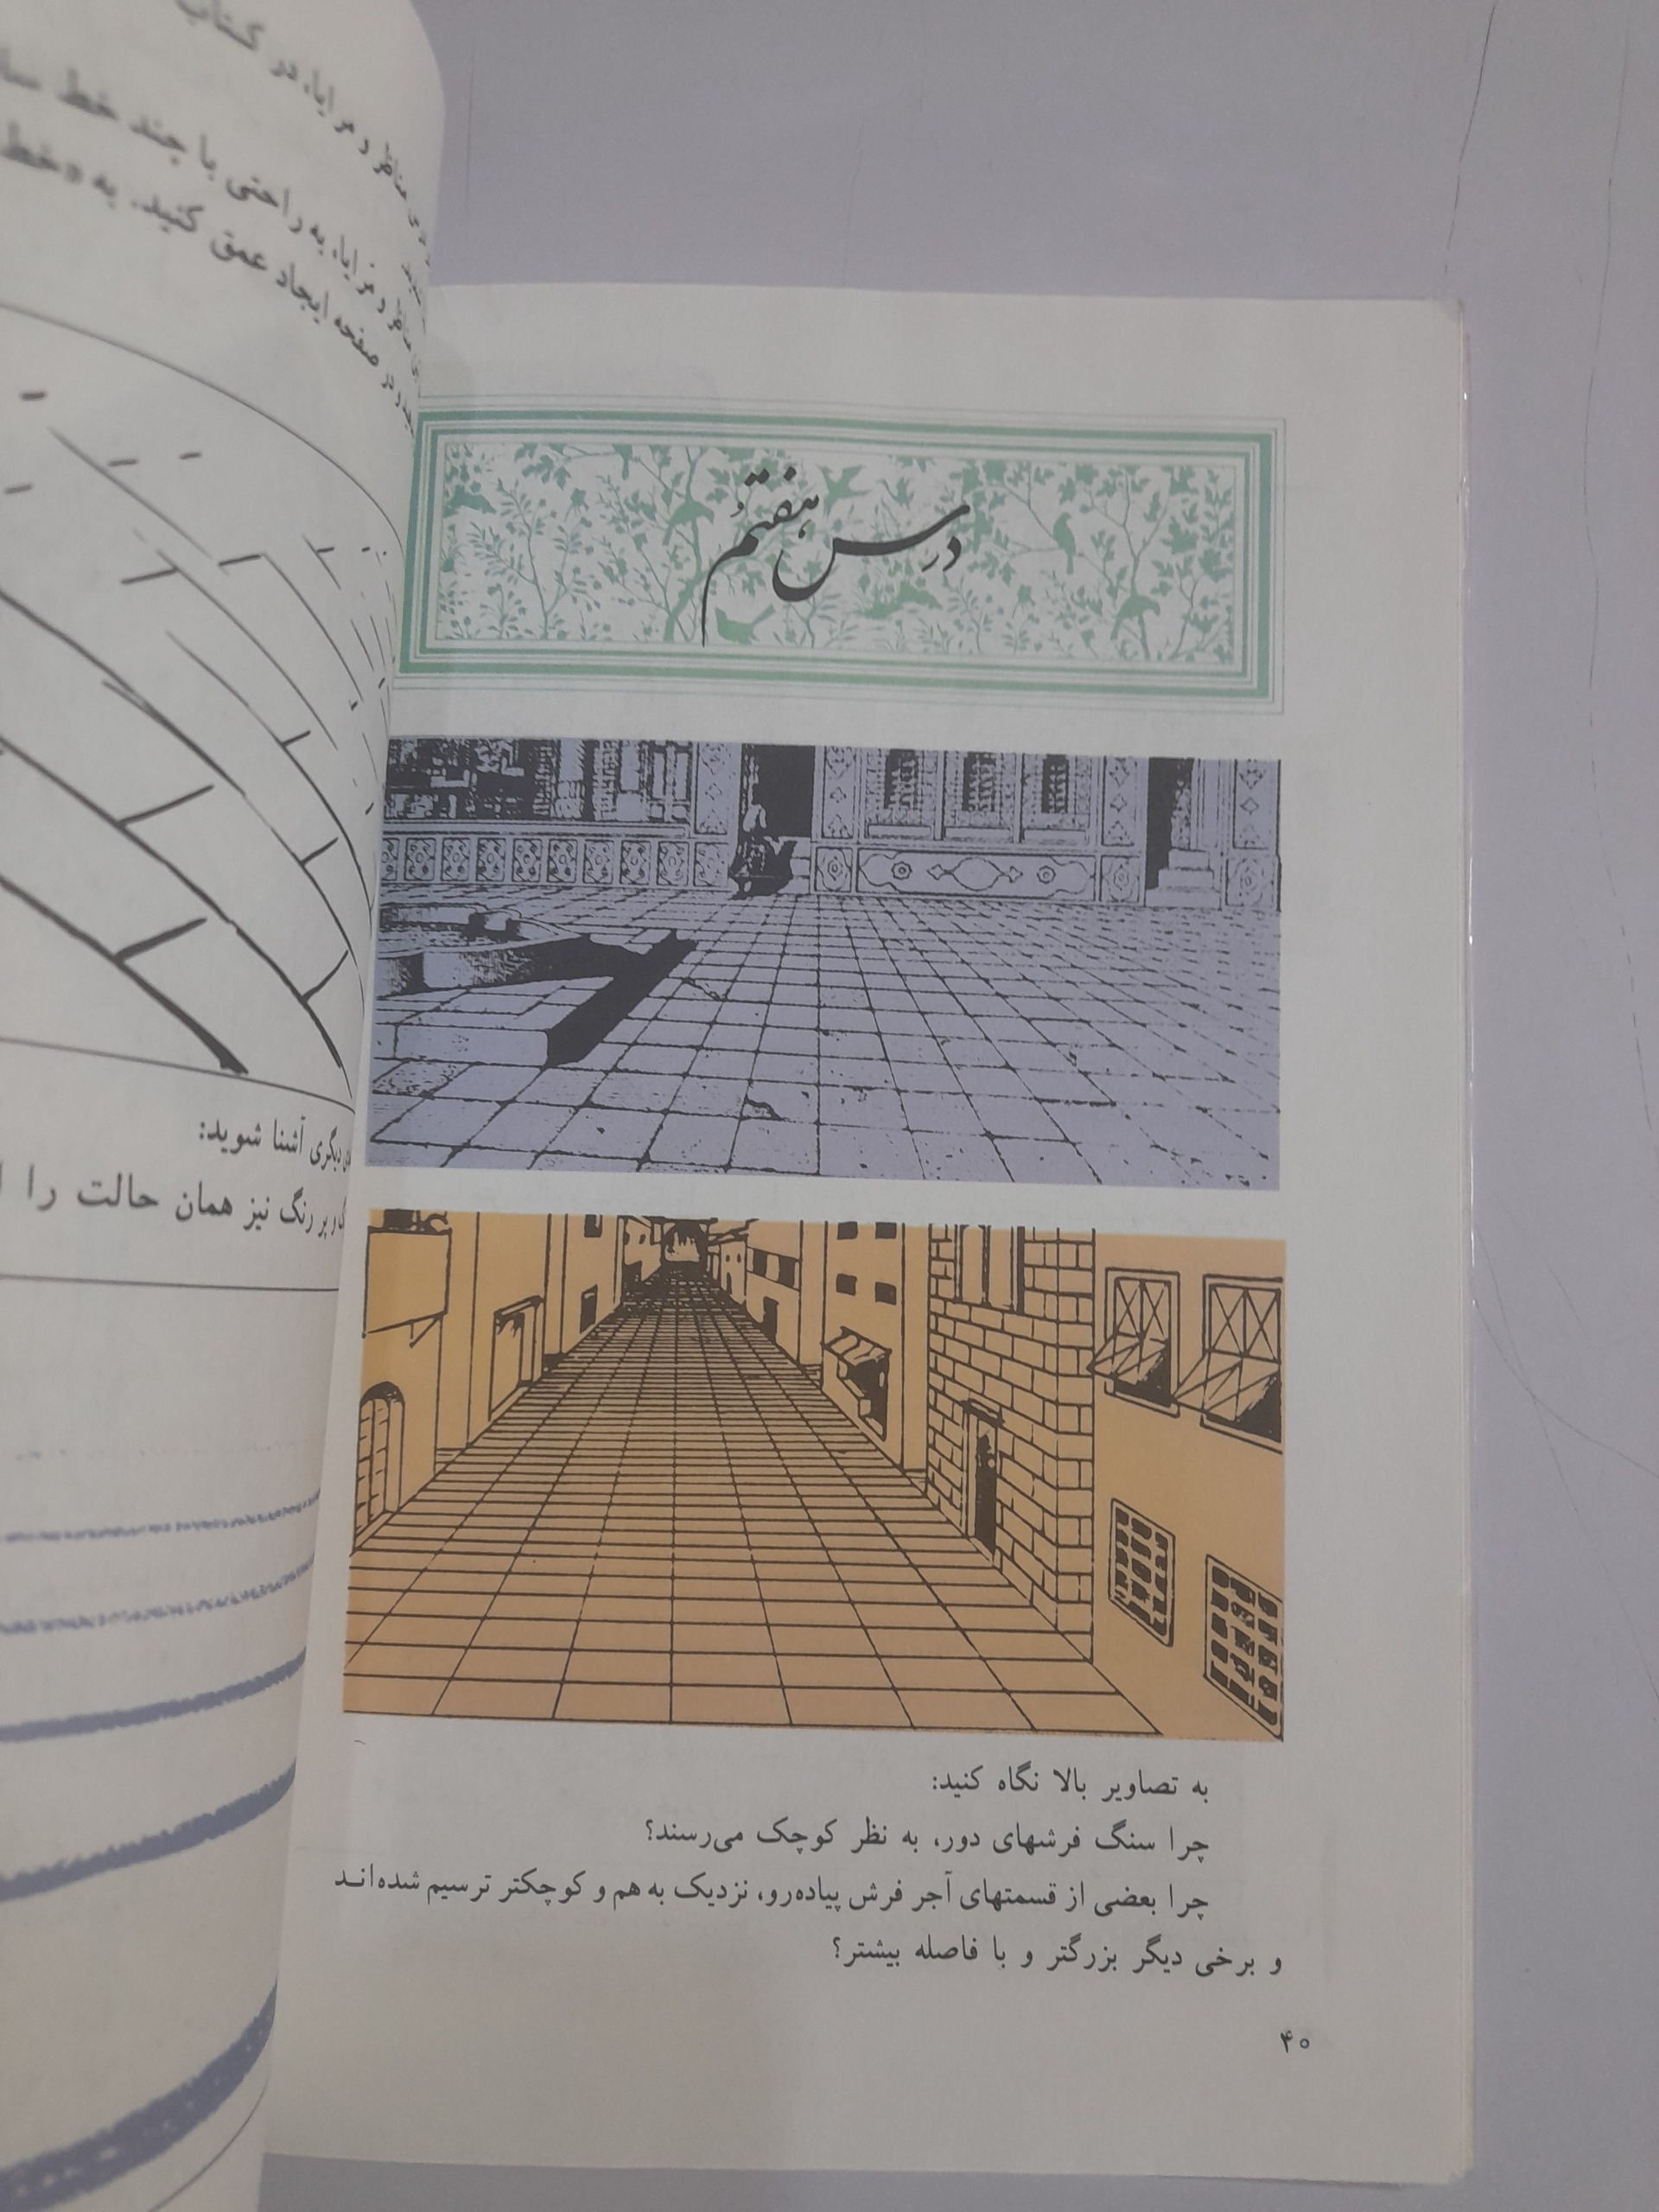 درس هفتم
به تصاویر بالا نگاه کنید:
چرا سنگ فرشهای دور، به نظر کوچک می‌رسند؟
چرا بعضی از قسمتهای آجر فرش پیاده‌رو، نزدیک به هم و کوچکتر ترسیم شده‌اند
و برخی دیگر بزرگتر و با فاصله بیشتر؟
۴۰
مناظر و مرایا، در کتاب
مناظر و مرایا، به راحتی با چند خط
در صفحه ایجاد عمق کنید. به «خط
دیگری آشنا شوید:
و پر رنگ نیز همان حالت را